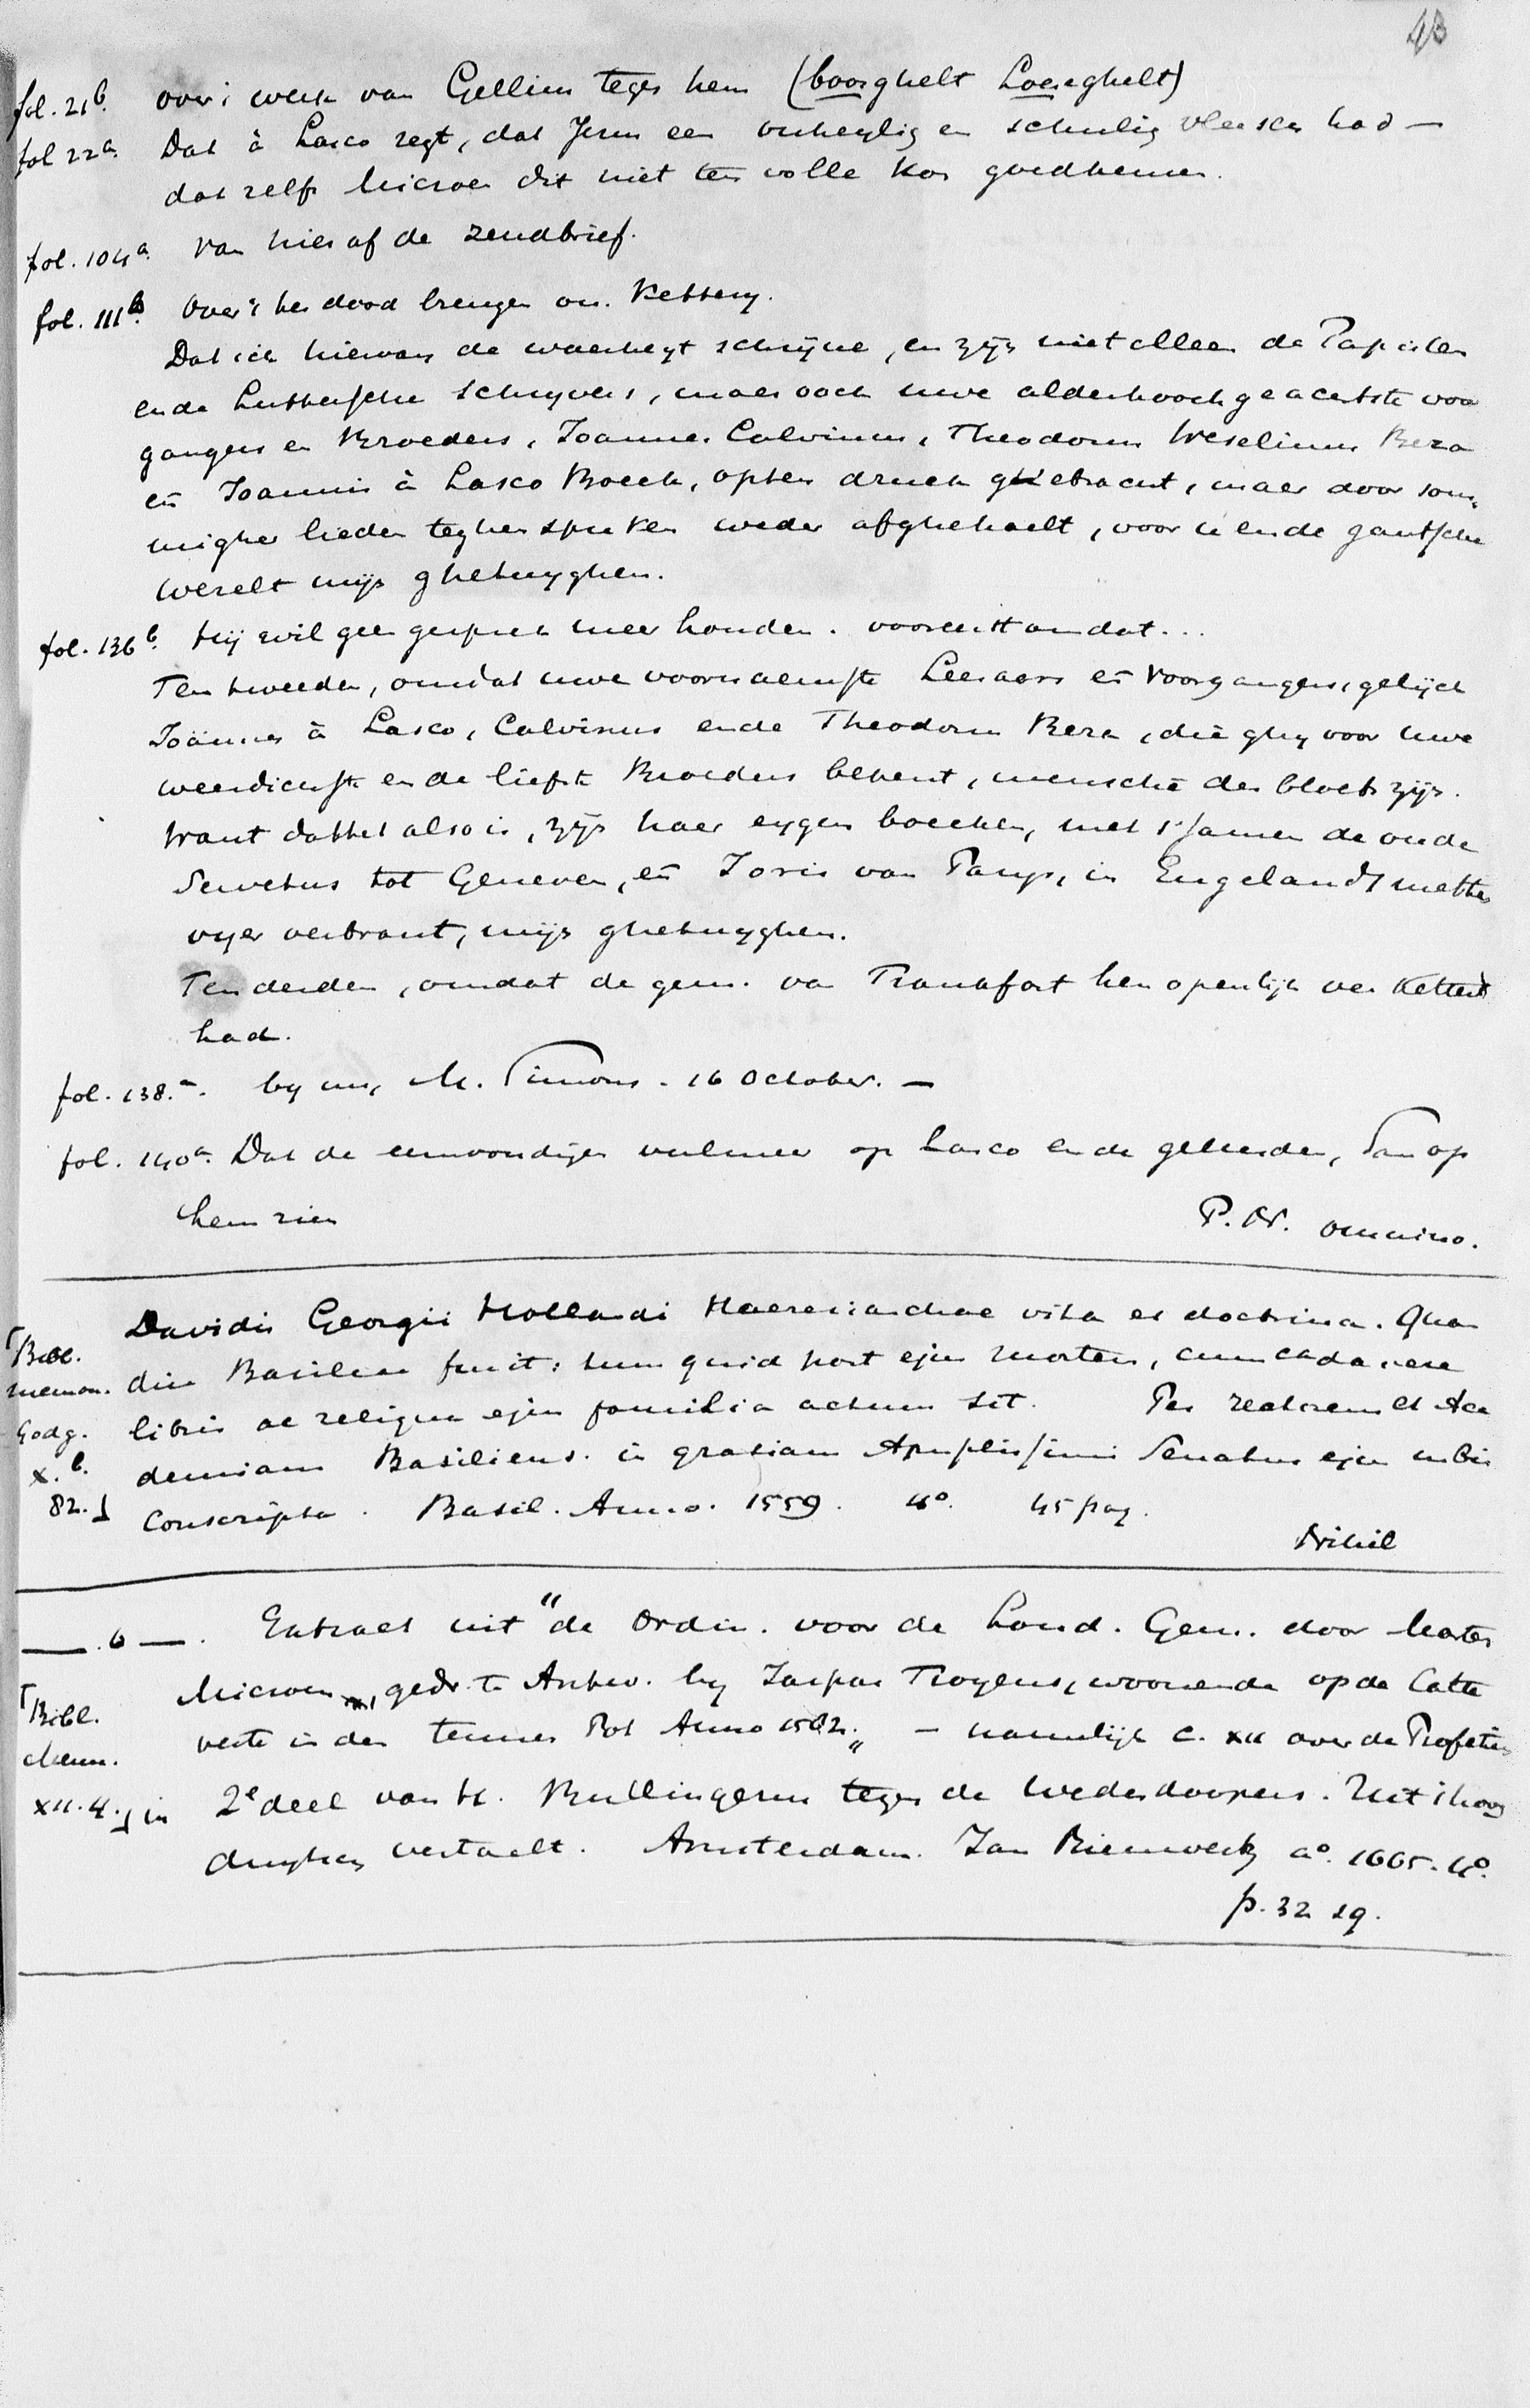 43
fol. 21b. over 't werk van Gellius tegen hem (boosghelt Loesghelt)
fol 22a. Dat à Lasco zegt, dat Jesus een onheylig en schuldig vleesch had —
dat zelfs Micron dit niet ten volle kon goedkeuren.
fol. 104a. Van hier af de zendbrief.
fol. 111b. Over 't ter dood brengen om. Kettery.
Dat ick hiervan de waerheyt schrijve, en zijn niet alleen de Papisten
ende Luthersche schryvers, maer ooch uwe alderhoochgeacertste voor
gangers en Broeders, Joannes Calvinus, Theodorus Weselinus Beza
eñ Joannis à Lasco Boeck, opten druck ghebracht, maer door som-
migher lieden teghenspreken weder afghehaelt, voor u ende gantsche
werelt mijn ghetuyghen.
fol. 136b. Hij wil geen gesprek meer houden. vooreerst omdat...
Ten tweeden, omdat uwe voornaemste Leeraers eñ Voorgangers, gelijck
Joannes à Lasco, Calvinus ende Theodorus Beza, die ghy voor uwe
weerdichste ende liefste Broeders bekent, menschē des bloets zijn.
Want dattet also is, zijn haer eygen boecken, met t'samen de oude
Servetus tot Geneven, eñ Joris van Parys, in Engelandt metten
vyer verbrant, mijn ghetuyghen.
Ten derden, omdat de gem. van Frankfort hen openlijk verketterd
had.
fol. 138.a. by my, M. Simons. 16 October. —
fol. 140a. Dat de eenvoudigen veelmeer op Lasco en de geleerden, dan op
hem zien
P. N. omnino.
Davidis Georgii Hollandi Haeresiarchae vita et doctrina. Quam
Bibl. diu Basileae fuit: tum quid post ejus mortem, cum cadavere
mennon. libris ac reliqua ejus familia actum sit. Per rectorem et Aca
Godg. demiam Basiliens. in gratiam Amplissimi Senatus ejus urbis
X. b. 82. conscripta. Basil. Anno. 1559. 4o. 45 pag.
Nihil
— . 6 — . Extract uit "de Ordin. voor de Lond. Gem. door Marten
Bibl. Micron, gedr. te Antw. by Jaspar Troyens, woonende op de Catte
Menn. veste in den tennen Pot Anno 1582„ — namelijk c. XII over de Profetien
XII. 4. in 2e deel van H. Bullingerus tegen de Wederdoopers. Uit 't hoog
duytsch vertaelt. Amsterdam. Jan Rieuwertsz ao. 1665. 4o.
p. 32 sq.